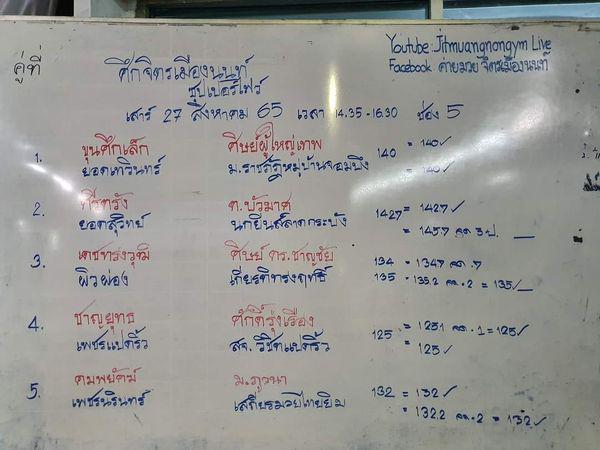 Youtube : Jitmuangnongym Live
Facebook ค่ายมวย จิตรเมืองนนท์
คู่ที่ ศึกจิตรเมืองนนท์
ซุปเปอร์ไฟว์
เสาร์ 27 สิงหาคม 65 เวลา 14.35 - 16.30 ช่อง 5
1. ขุนศึกเล็ก ศิษย์ผู้ใหญ่เทพ 140 = 140 ✓
ยอดเทวินทร์ ม.ราชภัฏหมู่บ้านจอมบึง = 140 ✓
2. ศรีตรัง ต.บัวมาศ 142.7 = 142.7 ✓
ยอดสุวิทย์ นกยินส์ลาดกระบัง = 145.7 ลด 3 ป.
3. เดชทรงวุฒิ ศิษย์ ดร.ชาญชัย 134 = 134.7 ลด .7
ผิวผ่อง เกียรติทรงฤทธิ์ 135 = 135.2 ลด .2 = 135 ✓
4. ชาญยุทธ ศักดิ์รุ่งเรือง 125 = 125.1 ลด .1 = 125 ✓
เพชรแปดริ้ว สจ.วิชิตแปดริ้ว = 125 ✓
5. คมพยัคฆ์ ม.ภูวนา 132 = 132 ✓
เพชรนรินทร์ เสถียรมวยไทยยิม = 132.2 ลด .2 = 132 ✓